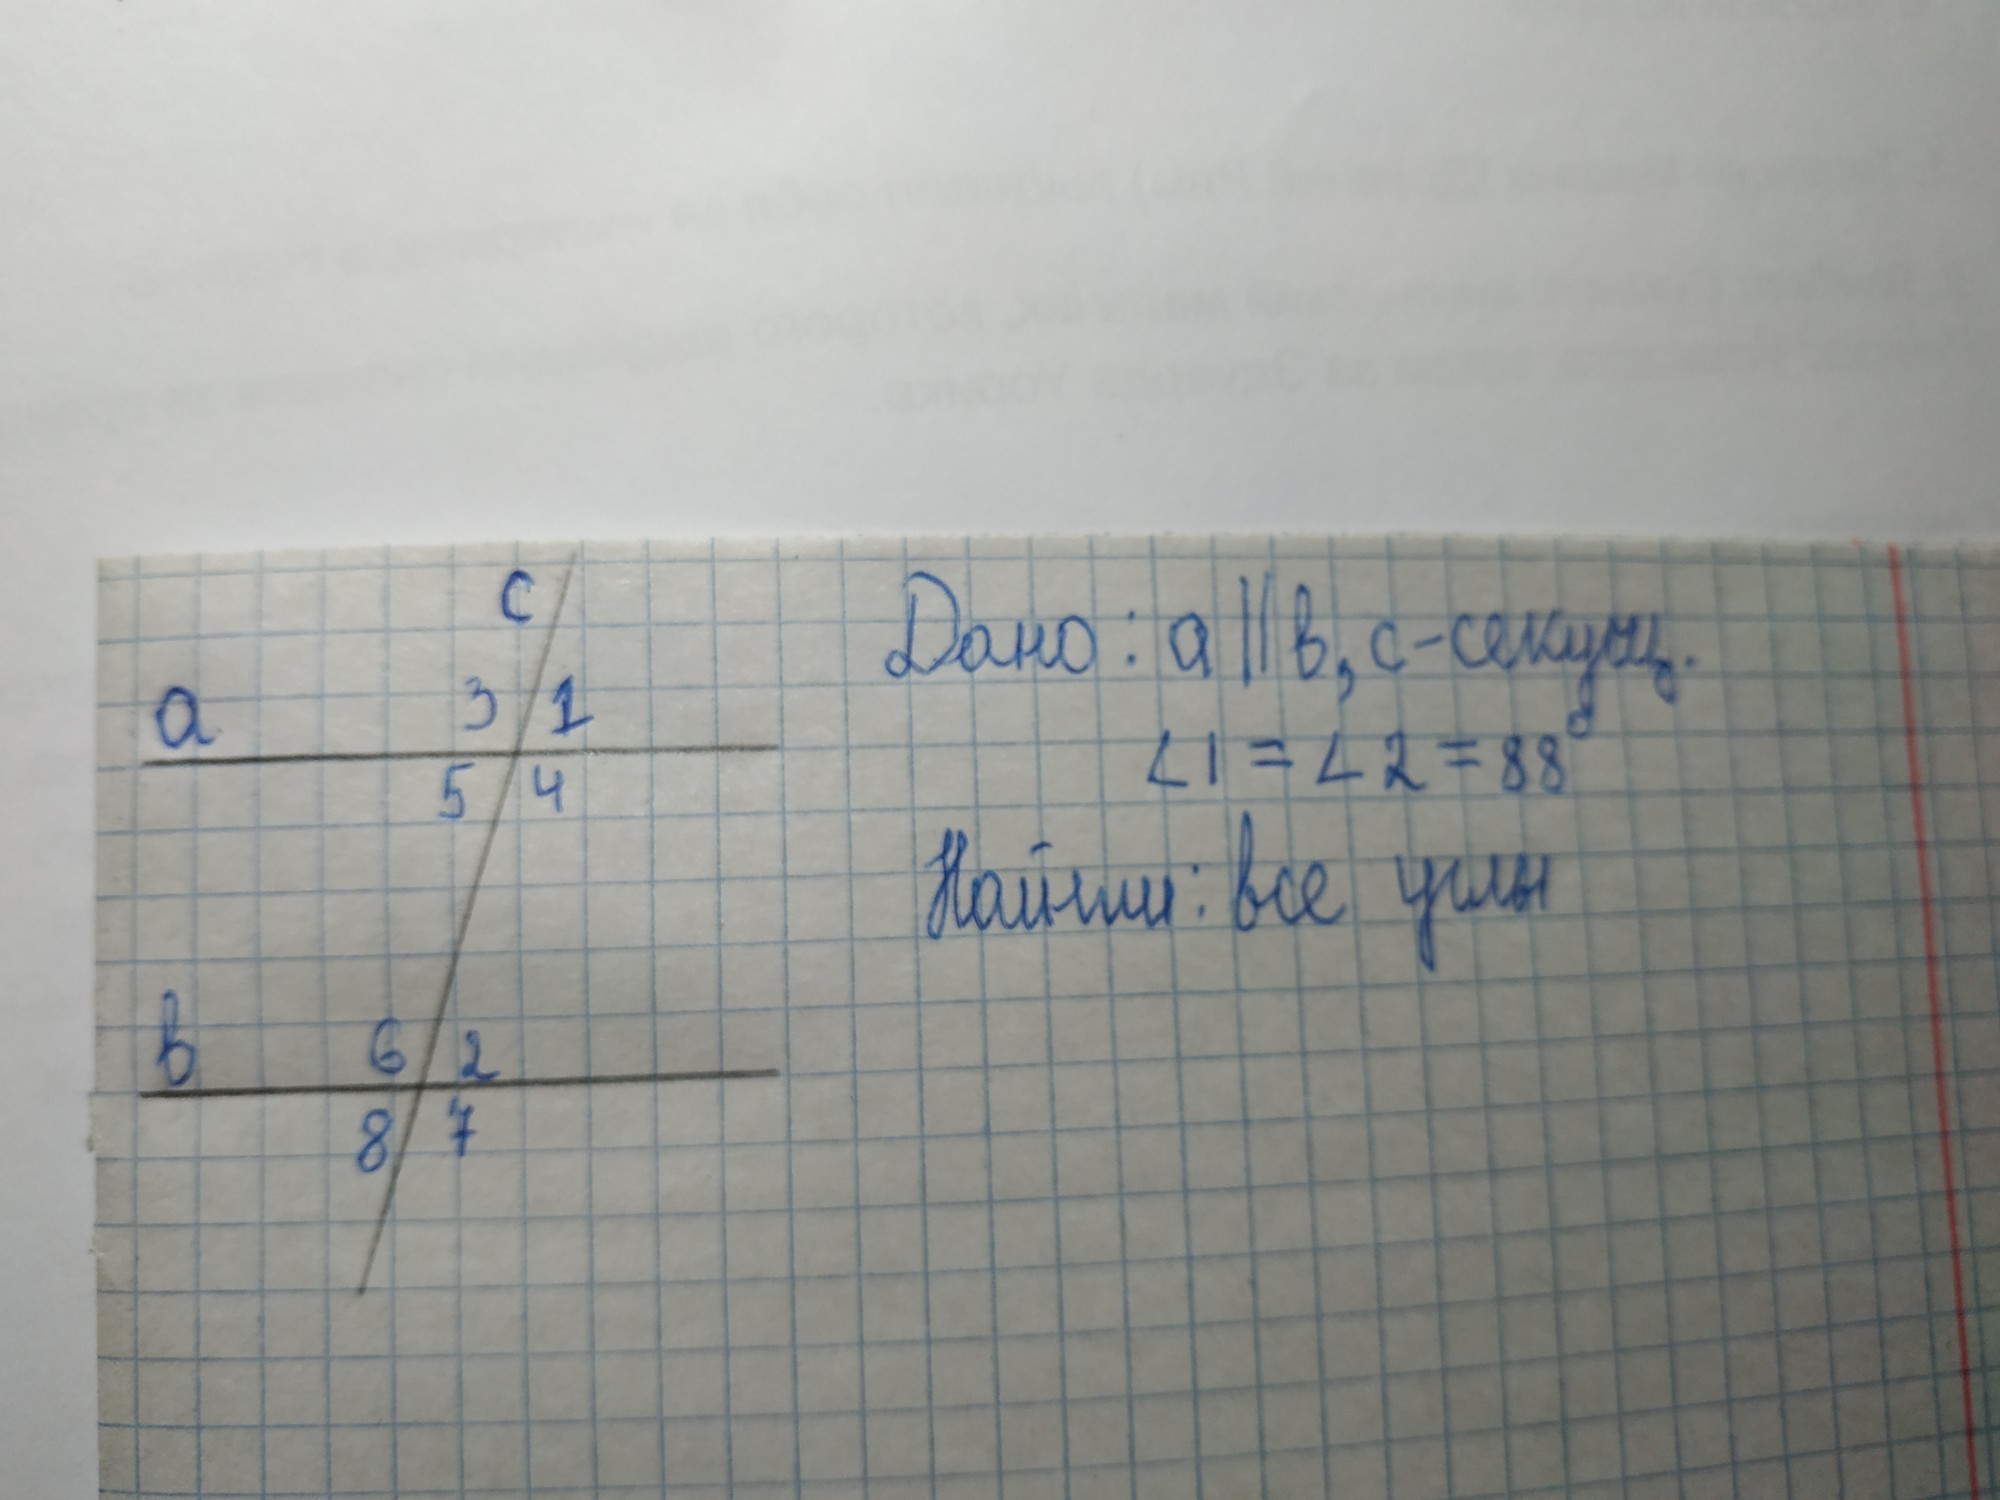 c
3 1
a
5 4
6 2
в
8 7
Дано: a || в, c - секущ.
∠1 = ∠2 = 88°
Найти: все углы